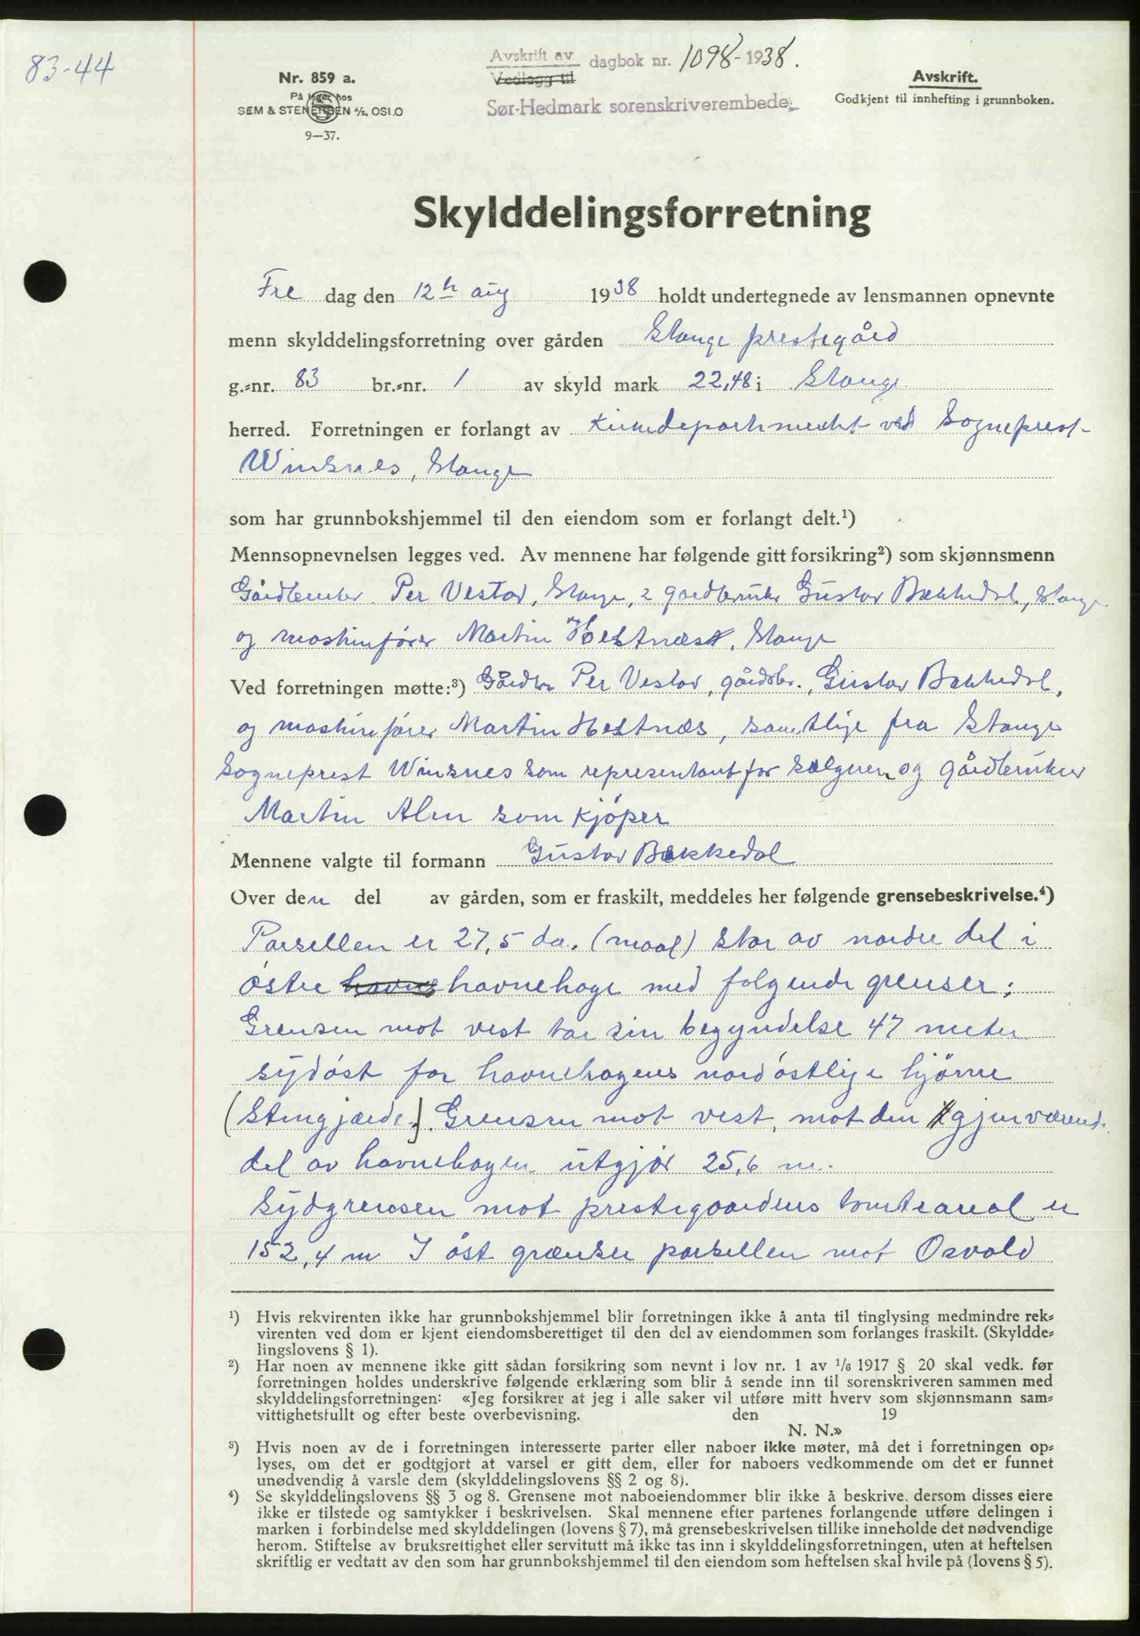 83-44
Avskrift av
Vedlegg til
dagbok nr. 1098-1938.
Sør-Hedmark sorenskriverembede.
Nr. 859 a.
På lager hos
SEM & STENERSEN A/S, OSLO
9—37.
Avskrift.
Godkjent til innhefting i grunnboken.
Skylddelingsforretning
Fre dag den 12th aug 1938 holdt undertegnede av lensmannen opnevnte
menn skylddelingsforretning over gården Stange prestegård
g.-nr. 83 br.-nr. 1 av skyld mark 22,48 i Stange
herred. Forretningen er forlangt av Kirkedepartmentet ved Sogneprest
Winsnes, Stange
som har grunnbokshjemmel til den eiendom som er forlangt delt.¹)
Mennsopnevnelsen legges ved. Av mennene har følgende gitt forsikring²) som skjønnsmenn
Gårdbruker Per Vestad, Stange, 2 gardbruker Gustav Bakkedal, Stange
og maskinfører Martin Hestnæs, Stange
Ved forretningen møtte:³) Gårdbr Per Vestad, gårdbr. Gustav Bakkedal,
og maskinfører Martin Hestnæs, samtlige fra Stange
Sogneprest Winsnes som representant for selgeren og gårdbruker
Martin Alm som kjøper
Mennene valgte til formann Gustav Bakkedal
Over den del av gården, som er fraskilt, meddeles her følgende grensebeskrivelse.⁴)
Parsellen er 27,5 da. (maal) stor av nordre del i
østre havne havnehage med følgende grenser:
Grensen mot vest tar sin begyndelse 47 meter
sydøst for havnehagens nordøstlige hjørne
(Stengjærde). Grensen mot vest, mot den gjenværend.
del av havnehagen utgjør 25,6 m.
Sydgrensen mot prestegaardens tomteareal er
152,4 m I øst grænser parsellen mot Osvald
¹) Hvis rekvirenten ikke har grunnbokshjemmel blir forretningen ikke å anta til tinglysing medmindre rek-
virenten ved dom er kjent eiendomsberettiget til den del av eiendommen som forlanges fraskilt. (Skyldde-
lingslovens § 1).
²) Har noen av mennene ikke gitt sådan forsikring som nevnt i lov nr. 1 av ¹/₆ 1917 § 20 skal vedk. før
forretningen holdes underskrive følgende erklæring som blir å sende inn til sorenskriveren sammen med
skylddelingsforretningen: «Jeg forsikrer at jeg i alle saker vil utføre mitt hverv som skjønnsmann sam-
vittighetsfullt og efter beste overbevisning. den 19
N. N.»
³) Hvis noen av de i forretningen interesserte parter eller naboer ikke møter, må det i forretningen op-
lyses, om det er godtgjort at varsel er gitt dem, eller for naboers vedkommende om det er funnet
unødvendig å varsle dem (skylddelingslovens §§ 2 og 8).
⁴) Se skylddelingslovens §§ 3 og 8. Grensene mot naboeiendommer blir ikke å beskrive, dersom disses eiere
ikke er tilstede og samtykker i beskrivelsen. Skal mennene efter partenes forlangende utføre delingen i
marken i forbindelse med skylddelingen (lovens § 7), må grensebeskrivelsen tillike inneholde det nødvendige
herom. Stiftelse av bruksrettighet eller servitutt må ikke tas inn i skylddelingsforretningen, uten at heftelsen
skriftlig er vedtatt av den som har grunnbokshjemmel til den eiendom som heftelsen skal hvile på (lovens § 5).